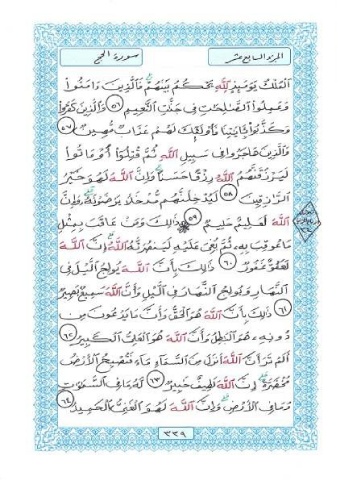 الجزء السابع عشر
سورة الحج
الملك يومئذ لله يحكم بينهم فالذين ءامنوا
وعملوا الصلحت في جنت النعيم ٥٦ والذين كفروا
وكذبوا بءايتنا فأولئك لهم عذاب مهين ٥٧
والذين هاجروا في سبيل الله ثم قتلوا أو ماتوا
ليرزقنهم الله رزقا حسنا وإن الله لهو خير
الرازقين ٥٨ ليدخلنهم مدخلا يرضونه وإن
الله لعليم حليم ٥٩ ذلك ومن عاقب بمثل
ما عوقب به ثم بغي عليه لينصرنه الله إن الله
لعفو غفور ٦٠ ذلك بأن الله يولج اليل في
النهار ويولج النهار في اليل وأن الله سميع بصير
٦١ ذلك بأن الله هو الحق وأن ما يدعون من
دونه هو البطل وأن الله هو العلي الكبير ٦٢
ألم تر أن الله أنزل من السماء ماء فتصبح الأرض
مخضرة إن الله لطيف خبير ٦٣ له ما في السموت
وما في الأرض وإن الله لهو الغني الحميد ٦٤
٣٣٩